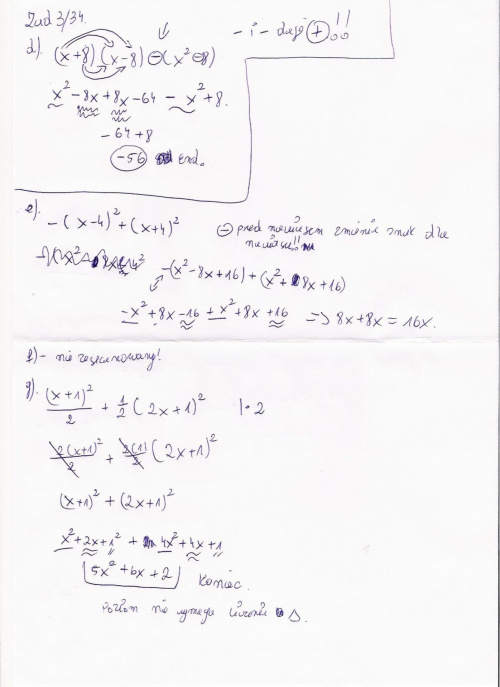 Zad 3/34.
d). (x+8)(x-8) - (x² - 8) - i - daje + !!
x² - 8x + 8x - 64 - x² + 8.
- 64 + 8
-56 end.
e). -(x-4)² + (x+4)² - pred nawiasem zmienia znak dla
nawiasu!!
-(x² - 8x + 16) + (x² + 8x + 16)
-x² + 8x - 16 + x² + 8x + 16 => 8x + 8x = 16x.
f) - nie
g). (x+1)²/2 + 1/2 (2x+1)² | · 2
2(x+1)²/2 + 2(1)/2 (2x+1)²
(x+1)² + (2x+1)²
x² + 2x + 1² + 4x² + 4x + 1
5x² + 6x + 2 Koniec.
nie wymaga Δ.